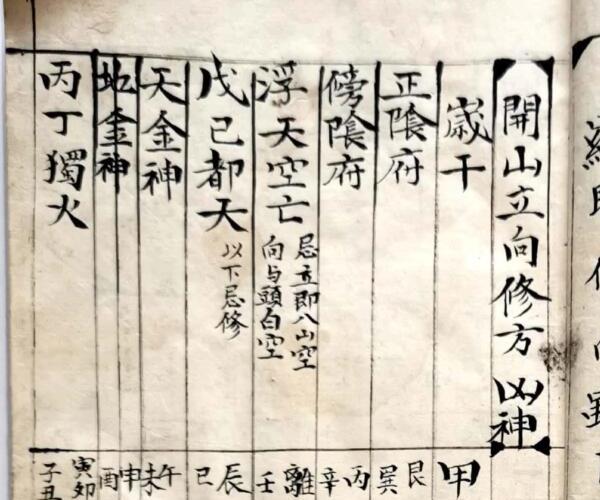 開山立向修方凶神
歲干
甲
正陰府
艮
巽
傍陰府
丙
辛
浮天空亡
忌立即八山空
向与頭白空
離
壬
戊己都天
以下忌修
辰
巳
天金神
午
未
地金神
申
酉
丙丁獨火
寅卯
子丑